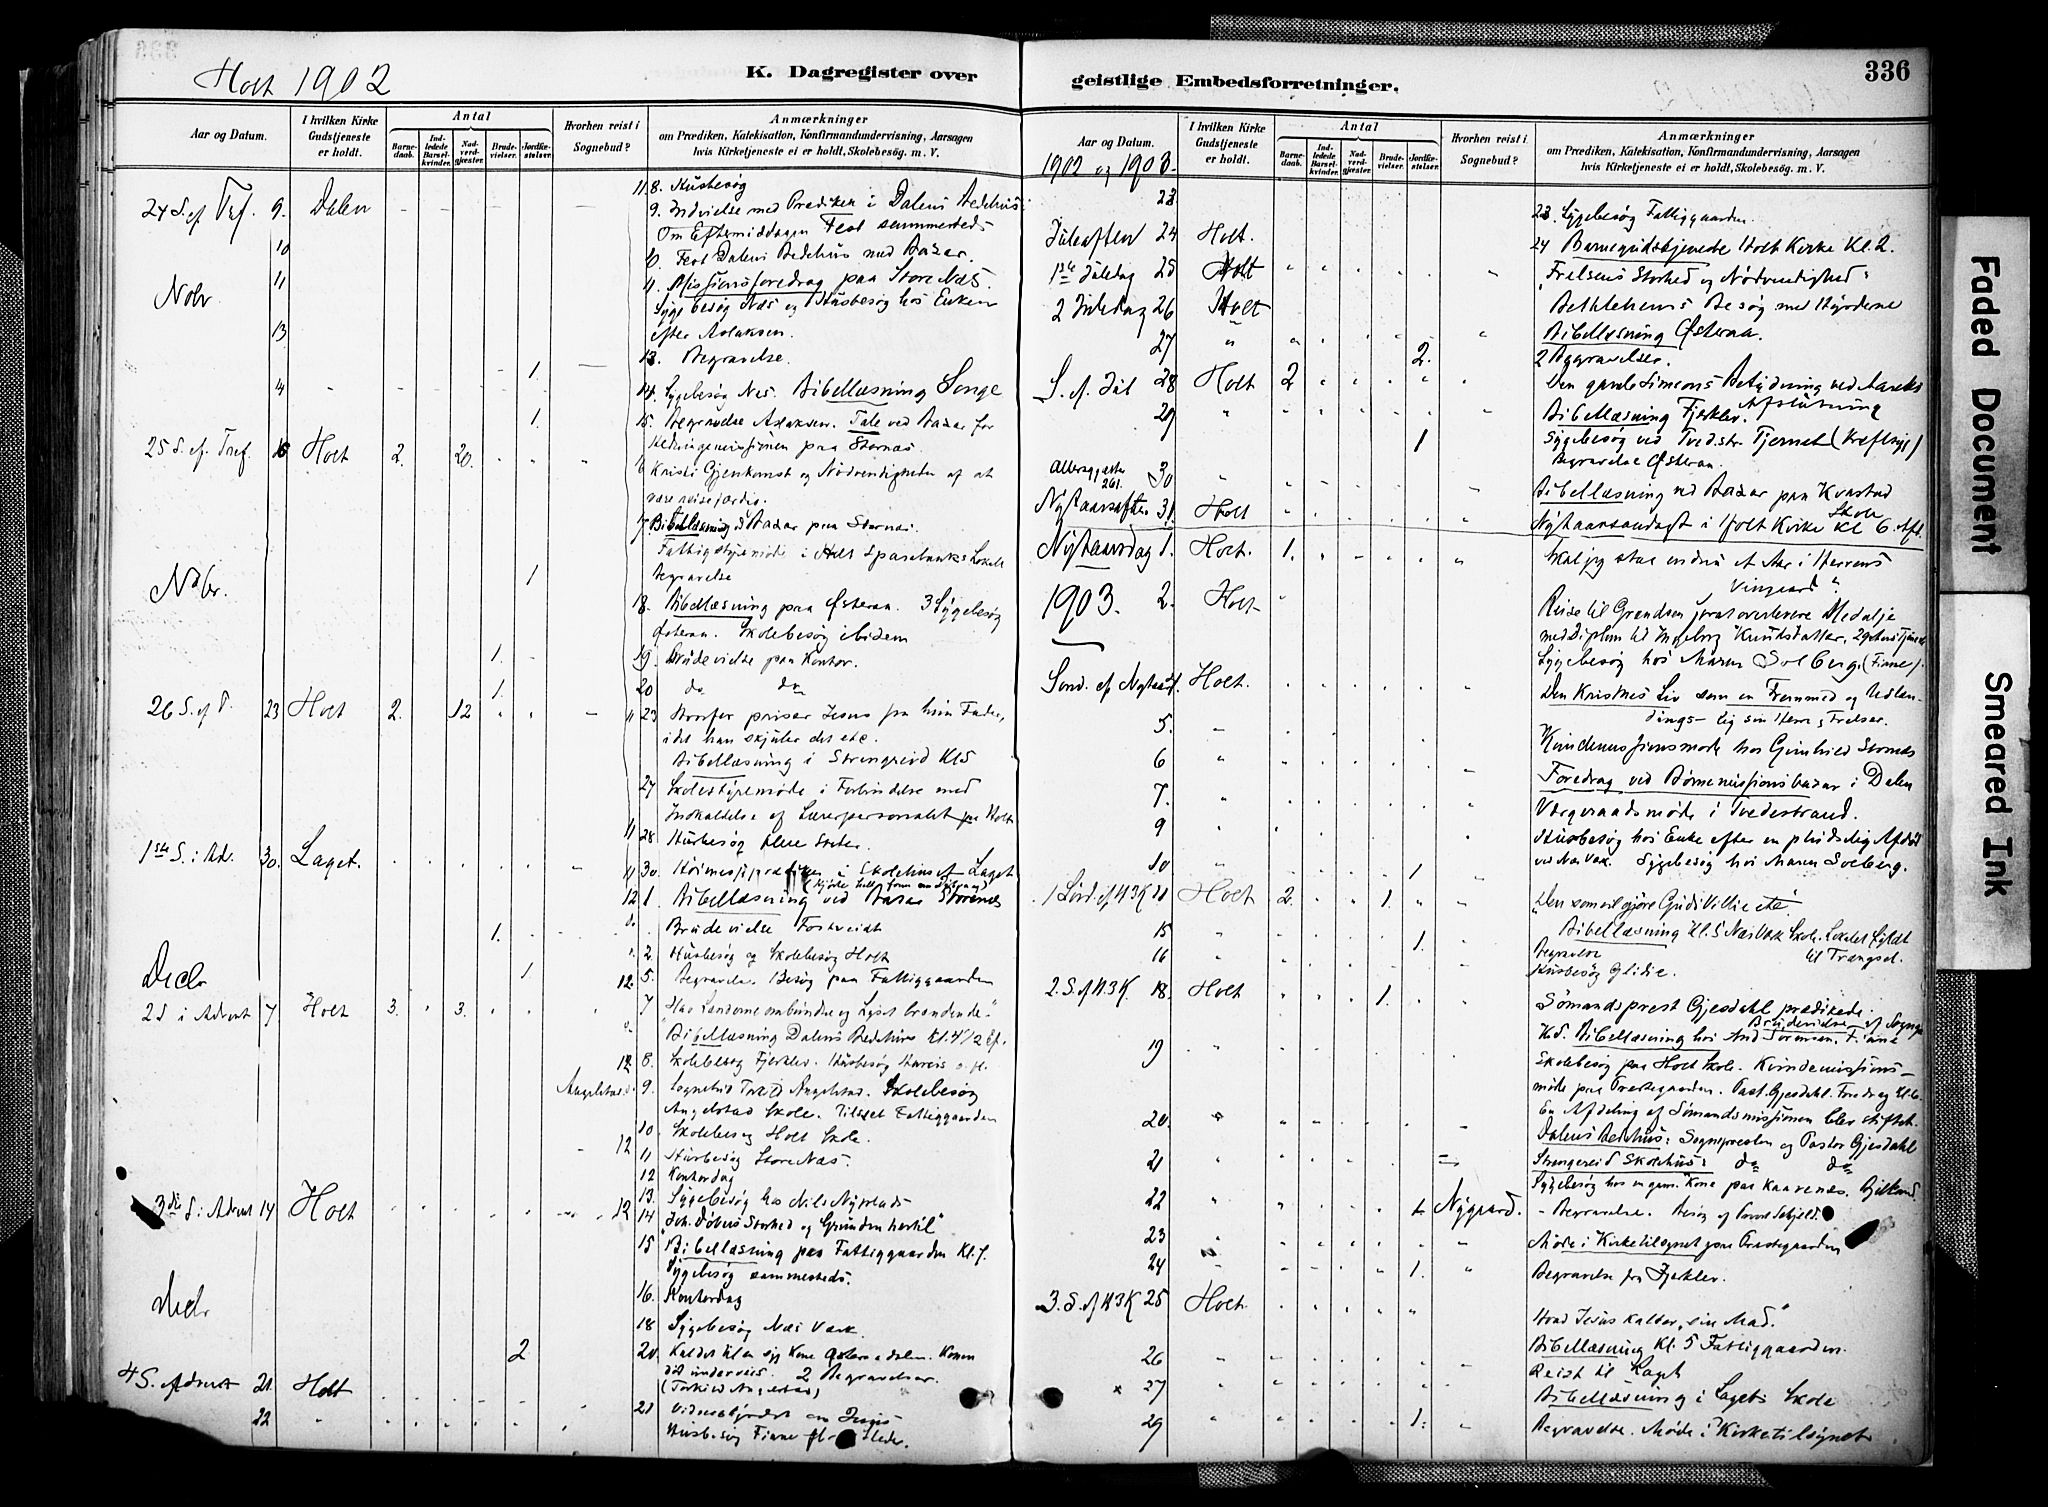 Holt 1902
K. Dagregister over
Aar og Datum.
I hvilken Kirke Gudstjeneste er holdt.
Antal
Barnedaab.
Indledede Barselkvinder.
Nadverdgjæster.
Brudevielser.
Jordfæstelser.
Hvorhen reist i Sognebud?
Anmærkninger
om Prædiken, Katekisation, Konfirmandundervisning, Aarsagen
hvis Kirketjeneste ei er holdt, Skolebesøg. m. V.
11 8. Husbesøg
24 S. ef Tref. 9. Dalen 9. Indvielse med Prædiken i Dalens Bedehus.
Om Eftermiddagen Fest sammesteds
10 10. Fest Dalens Bedehus med Basar.
Nobr. 11 11. Missionsforedrag paa StoreNæs.
Sygebesøg Næs og Husbesøg hos Enken
13 efter Aslaksen.
1. 13. Begravelse.
4 14. Sygebesøg Nes. Bibellæsning Songe
1. 15. Begravelse Aslaksen. Tale ved Basar for
Hedningemissionen paa Stornæs
25 S. ef. Tref. 16 Holt 2. 20. 16 Kristi Gjenkomst og Nødvendigheden af at
være reisefærdig.
17 Bibellæsning Basar paa Stornæs.
Fattigstyremøde i Holt Sparebanks Lokale
Nobr. 1 Begravelse
18. Bibellæsning paa Østeraa. 3 Sygebesøg
Østeraa. Skolebesøg ibidem
1. 19. Brudevielse paa Kontor.
1. 20 do do
26 S. ef T. 23 Holt 2. 12 11 23 Hvorfor priser Jesus sin Fader,
idet han skjuler det etc.
Bibellæsning i Strengereid Kl 5
27 Skolestyremøde i Forbindelse med
Indkaldelse af Lærerpersonalet
11 28. Husbesøg flere Steder.
1ste S. i Ad. 30. Laget. 11 30. Skolehuset Laget
12 1. Bibellæsning ved Basar Storenæs
1. Brudevielse Fostveidt
2. Husbesøg og Skolebesøg Holt
Decbr 1 12. 5. Begravelse. Besøg paa Fattiggaarden
2 S i Advent 7 Holt 3. 3. 7 Hav Lænderne ombundne og Lyset brændende."
Bibellæsning Dalens Bedehus Kl. 4 1/2 Ef.
12 8. Skolebesøg Fjerklev. Husbesøg
Angelstad. 9. Sognebud Angelstad. Skolebesøg
Angelstad Skole. Tilset Fattiggaarden
10. Skolebesøg Holt Skole.
12 11 Husbesøg StoreNæs.
12 Kontordag
13. Sygebesøg hos Nils
3die S. i Advent 14 Holt 12 14 Joh. Døbers Storhed og Grunden hertil"
15 Bibellæsning paa Fattiggaarden Kl. 7.
Sygebesøg sammesteds.
Decbr 16. Kontordag
18 Sygebesøg Næs Værk.
2 20. Kaldet til en syg Kone Kom
did underveis. 2 Begravelser.
4 S. Advent 21. Holt
22 21 Vidnesbyrdet om Jesus
Husbesøg Fiane Steder.
geistlige Embedsforretninger.
336
Aar og Datum.
I hvilken Kirke Gudstjeneste er holdt.
Antal
Barnedaab.
Indledede Barselkvinder.
Nadverdgjæster.
Brudevielser.
Jordfæstelser.
Hvorhen reist i Sognebud?
Anmærkninger
om Prædiken, Katekisation, Konfirmandundervisning, Aarsagen
hvis Kirketjeneste ei er holdt, Skolebesøg. m. V.
1902 og 1903.
23 23. Sygebesøg Fattiggaarden.
Juleaften 24 Holt. 24 Børnegudstjeneste Holt Kirke Kl. 2.
1ste Juledag 25 Holt "Frelsens Storhed og Nødvendighed"
2 Juledag 26 Holt Bethlehems Besøg med Hyrderne
27 " Bibellæsning Østeraa.
2. 2 Begravelser.
S. ef. Jul 28 Holt 2 Den gamle Simeons Betydning ved Aarets
Afslutning
29 Bibellæsning Fjerklev.
1 Sygebesøg ved Tvedestr. Tjernet (Kræftsyg)
Begravelse Østeraa.
Altersgjæster 261. 30 Bibellæsning ved Basar paa Kvastad
Skole
Nytaarsaften 31. Holt Nytaarsandagt i Holt Kirke Kl 6. Aft.
Nytaarsdag 1. Holt. 1. Skal jeg staa endnu et Aar i Herrens
Vingaard".
1903. 2. Holt Reise til Grendsen for at overlevere Medalje
med Diplom til Ingeborg Knudsdatter, 29 Aars Tjeneste
Sygebesøg hos Maren Solberg. (Fiane).
Sond. ef Nytaar. Holt. Den Kristnes Liv som en Fremmed og Udlændings-
lig sin Herre og Frelser.
5.
6 Kvindemissionsmøde hos Gunhild Stornæs
Foredrag ved Børnemissionsbasar i Dalen
7. Værgeraadsmøde i Tvedestrand.
9 Husbesøg hos Enke efter en pludselig Afdød
10 1 ved Næs Værk. Sygebesøg hos Maren Solberg.
1 Sønd. ef H3K 11 Holt 2. 1. "Den som vil gjøre Guds Villie etc".
15 1. Bibellæsning Kl. 5 NæsVærk Skole. Lokalet fyldt
til Trængsel.
16 Begravelse
Husbesøg Glidie.
2. S. ef H3K. 18. Holt 1. Sømandsprest Gjesdahl prædikede.
Brudevielse af Sogne
19 Kl. 5. Bibellæsning hos And Sørensen, Fiane
Skolebesøg paa Holt Skole. Kvindemissions-
møde paa Prestegaarden. Past. Gjesdahl. Foredrag Kl. 6.
20. En Afdeling af Sømandsmissionen blev stiftet.
Dalens Bedehus: Sognepresten og Pastor Gjesdahl
21 Strengereid Skolehus: do do
22 1 Nygaard. Sygebesøg hos en gam. Kone paa
- Begravelse. Besøg af
23 Møde i Kirketilsynet paa Prestegaarden
24 1. Begravelse fra Fjerklev.
3. S. ef H3K 25 Holt. Hvad Jesus kalder "sin Mad."
26 Bibellæsning Kl. 5 Fattiggaarden.
Reist til Laget
27 Bibellæsning i Lagets Skole
29 1. Begravelse. Møde i Kirketilsynet.
Faded Document
Smeared Ink